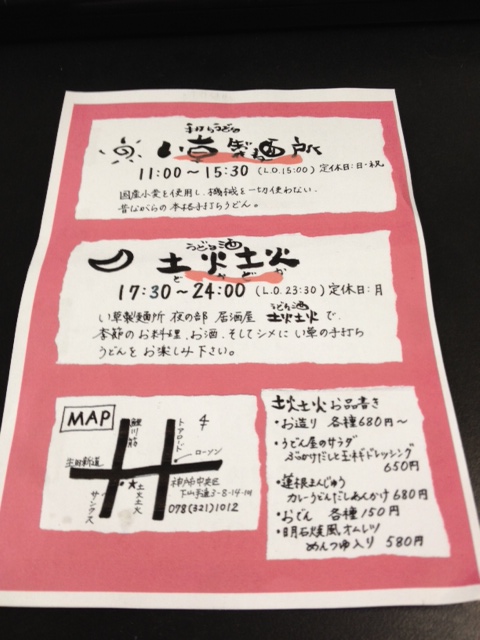 手打ちうどん
い草製麺所
11:00～15:30 (L.O.15:00) 定休日:日・祝
国産小麦を使用し、機械を一切使わない、
昔ながらの本格手打ちうどん。
うどん酒
土火土火
どかどか
17:30～24:00 (L.O.23:30) 定休日:月
い草製麺所 夜の部 居酒屋 うどん酒 土火土火で、
季節のお料理、お酒、そしてシメにい草の手打ち
うどんをお楽しみ下さい。
MAP
鯉川筋
トアロード
4
生田新道
ローソン
★土火土火
サンクス
神戸市中央区
下山手通3-8-14-1H
078(321)1012
土火土火お品書き
・お造り 各種680円～
・うどん屋のサラダ
ぶっかけだしと玉ネギドレッシング
650円
・蓮根まんじゅう
カレーうどんだしあんかけ680円
・おでん 各種150円
・明石焼風オムレツ
めんつゆ入り 580円